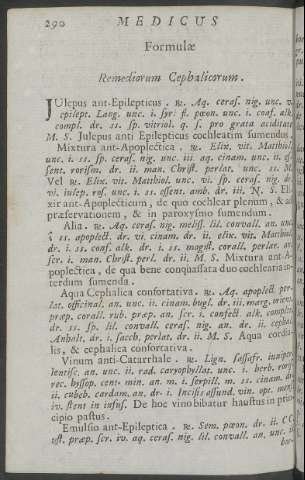 290 MEDICUS
Formulæ
Remediorum Cephalicorum.
JUlepus ant-Epilepticus. ℞. Aq. ceras. nig. unc. v.
epilept. Lang. unc. i. syr: fl. pæon. unc. i. coaf. alk.
compl. dr. ss. sp. vitriol. q. s. pro grata aciditate
M. S. Julepus anti Epilepticus cochleatim sumendus.
Mixtura ant-Apoplectica, ℞. Elix. vit. Matthiol.
unc. i. ss. sp. ceras. nig. unc. iii aq. cinam. unc. ii.
sent. rorism. dr. ii. man. Christ. perlat. unc. ss. M.
Vel ℞. Elix. vit. Matthiol. unc. vi. sp. ceras. nig.
vi. iulep. ros. unc. i. ss. essent. amb. dr. iii. N. S. Eli-
xir ant-Apoplecticum, de quo cochlear plenum, & ad
præservationem, & in paroxysmo sumendum.
Alia. ℞. Aq. ceras. nig. meliss. lil. convall. an. unc.
ss. apoplect. dr. vi. cinam. dr. ii. elix. vit. Matthiol.
dr. i. ss. conf. alk. dr. i. ss. magist. corall. perlat. an.
scr. i. man. Christ. perl. dr. ii. M. S. Mixtura ant-A-
poplectica, de qua bene conquassata duo cochlearia in-
terdum sumenda.
Aqua Cephalica confortativa. ℞. Aq. apoplect. per-
lat. officinal. an. unc. ii. cinam. bugl. dr. iii. marg.
præp. corall. rub. præp. an. scr. i. confect. alk. complet.
dr. ss. sp. lil. convall. ceras. nig. an. dr. ii. cephal.
Anhalt. dr. i. sacch. perlat. dr. ii. M. S. Aqua cordia-
lis, & cephalica confortativa.
Vinum anti-Catarrhale. ℞. Lign. sassafr.
lentisc. an. unc. ii. rad. caryophyllat. unc. i. herb.
rec. hyssop. cent. min. an. m. i. serpill. m. ss. cinam. dr.
ii. cubeb. cardam. an. dr. i. Incisis assund. vin. opt. mens.
iv. stent in infus. De hoc vino bibatur haustus in prin-
cipio pastus.
Emulsio ant-Epileptica. ℞. Sem. pæon. dr. ii. C C.
ust. præp. scr. iv. aq. ceras. nig. lil. convall. an. unc.
bor-